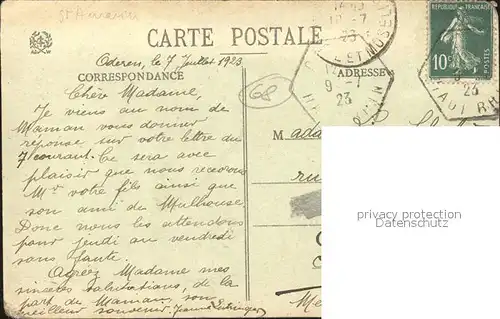 St Amarin
CARTE POSTALE
CORRESPONDANCE
ADRESSE
68
Oderen, le 7 Juillet 1923
Chère Madame,
Je viens au nom de
Maman vous donner
réponse sur votre lettre du
7 courant. Ce sera avec
plaisir que nous recevons
Mr votre fils ainsi que
son ami de Mulhouse
Donc nous les attendons
pour jeudi au vendredi
sans faute.
Agréez Madame mes
sincères salutations, de la
part de Maman, son
meilleur souvenir.
M ada
ru
Me
10c
POSTES
9-7
23
23
privacy protection
watermark